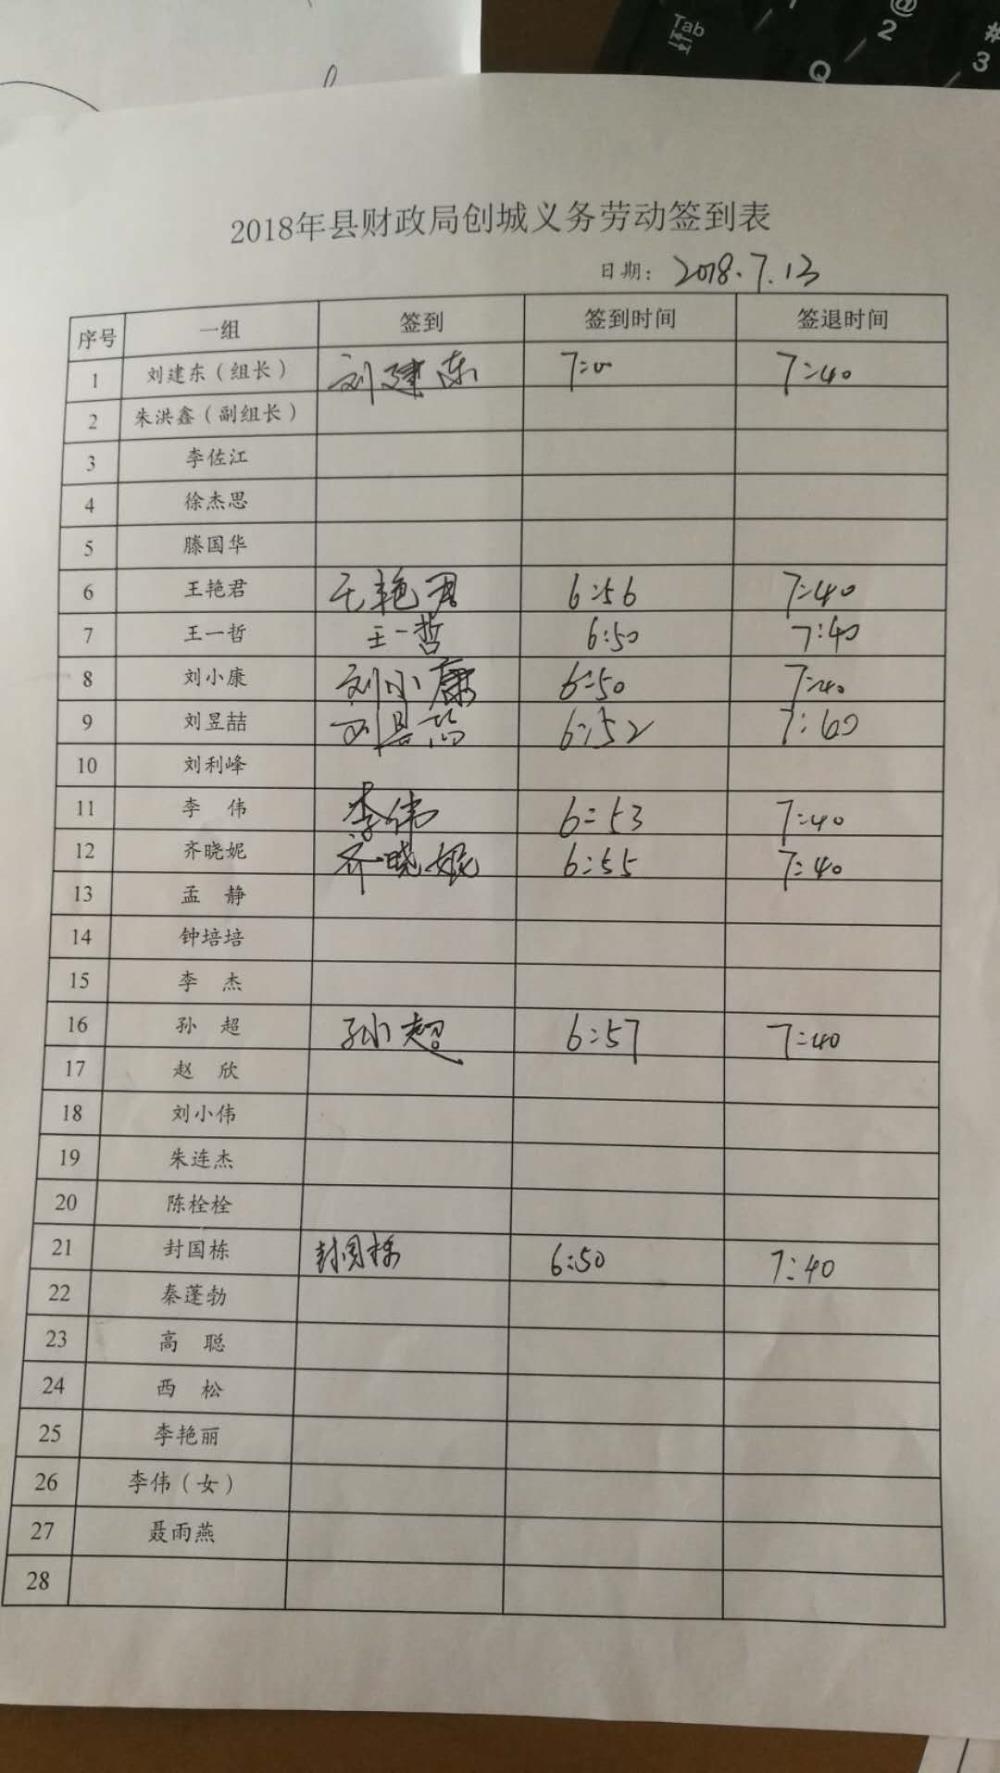 Tab
Q
@
2
#
3
2018年县财政局创城义务劳动签到表
日期： 2018.7.13
序号 一组 签到 签到时间 签退时间
1 刘建东（组长） 刘建东 7:00 7:40
2 朱洪鑫（副组长）
3 李佐江
4 徐杰思
5 滕国华
6 王艳君 王艳君 6:56 7:40
7 王一哲 王一哲 6:50 7:40
8 刘小康 刘小康 6:50 7:40
9 刘昱喆 刘昱喆 6:52 7:40
10 刘利峰
11 李 伟 李伟 6:53 7:40
12 齐晓妮 齐晓妮 6:55 7:40
13 孟 静
14 钟培培
15 李 杰
16 孙 超 孙超 6:57 7:40
17 赵 欣
18 刘小伟
19 朱连杰
20 陈栓栓
21 封国栋 封国栋 6:50 7:40
22 秦蓬勃
23 高 聪
24 西 松
25 李艳丽
26 李伟（女）
27 聂雨燕
28